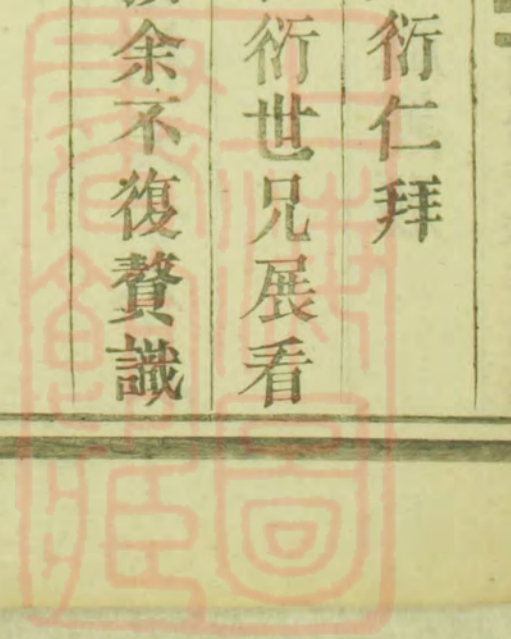 衍仁拜
衍世兄展看
余不復贅識